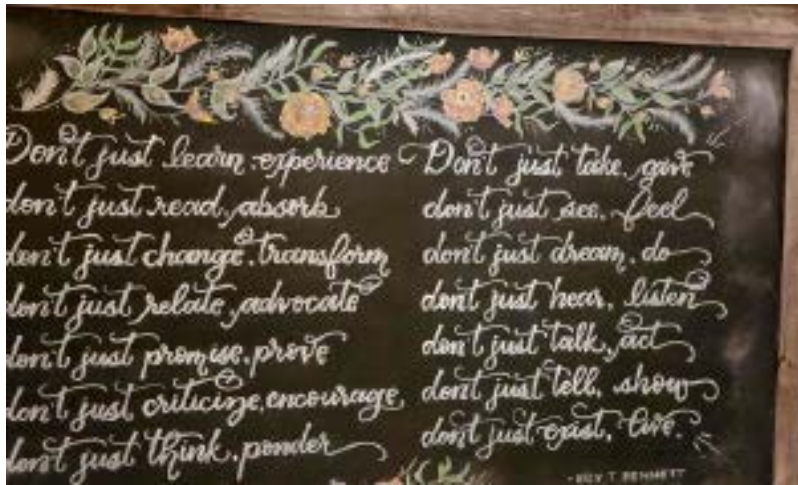 Don't just learn, experience
don't just read, absorb
don't just change, transform
don't just relate, advocate
don't just promise, prove
don't just criticize, encourage,
don't just think, ponder
Don't just take, give
don't just see, feel
don't just dream, do
don't just hear, listen
don't just talk, act
don't just tell, show
don't just exist, live.
- ROY T BENNETT